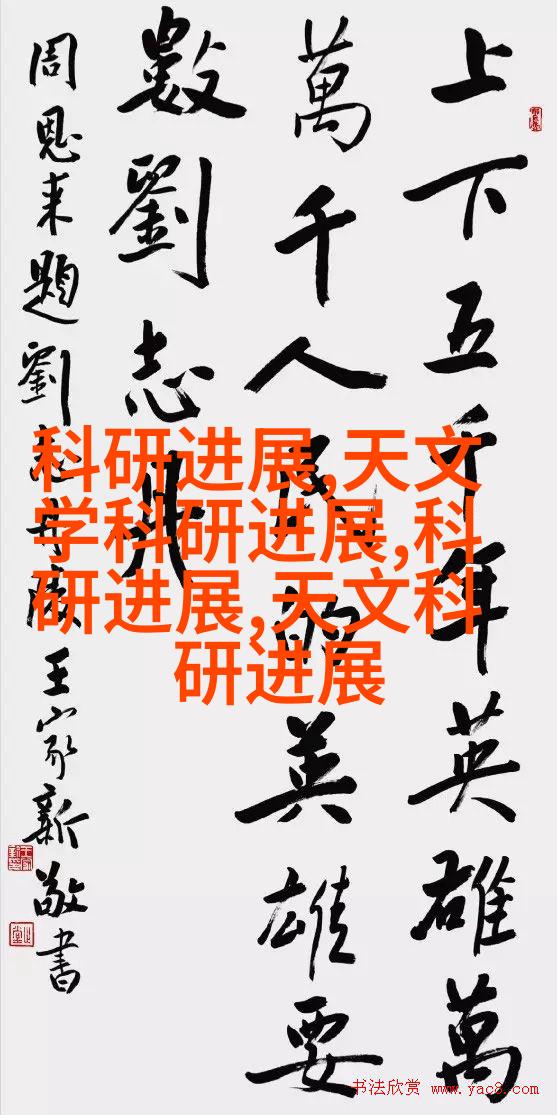 上下五千年英雄萬
萬千人民的英雄要
數劉志丹
周恩来題劉志丹王家新敬書
科研进展,天文
学科研进展,科
研进展,天文科
研进展
书法欣赏 www.yac8.com